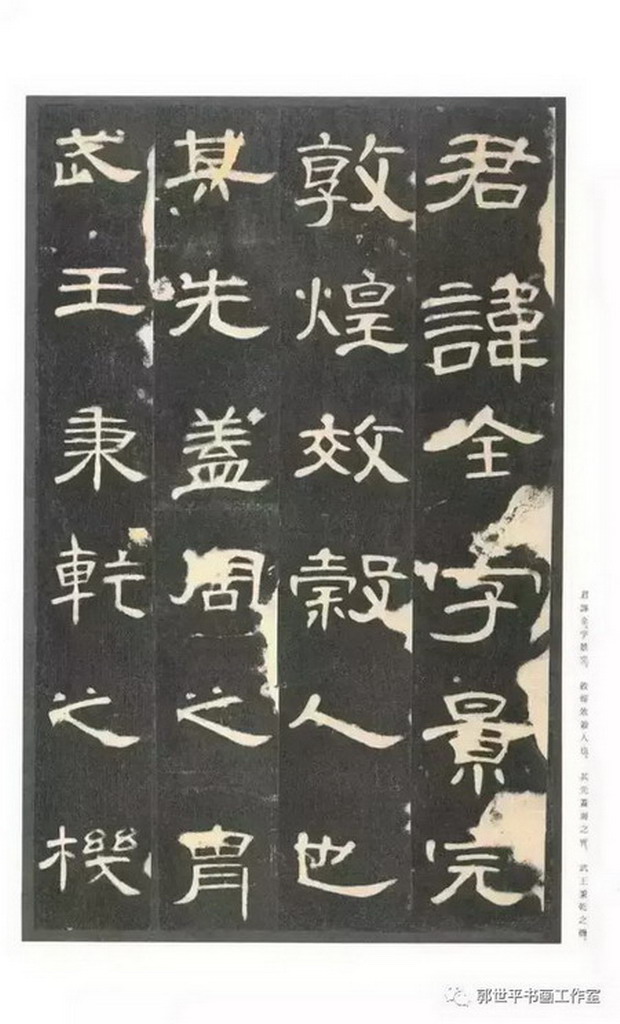 君諱全字景完
敦煌效穀人也
其先蓋周之胄
武王秉乾之機
君諱全，字景完，敦煌效穀人也。其先蓋周之胄，武王秉乾之機，
郭世平书画工作室